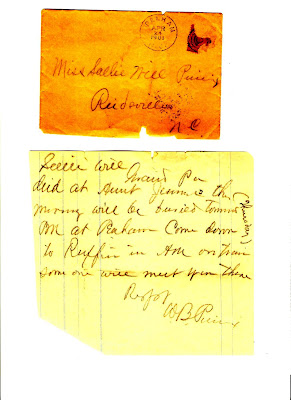 PELHAM
APR
24
1901
Miss Sallie Will Pinnix
Reidsville
N C
Sallie Will
Grand Pa
died at Aunt Jennie's this
morning will be buried tomrow (Thursday)
AM at Pelham Come down
to Ruffin in AM on train
some one will meet you there
Respt
W B Pinnix